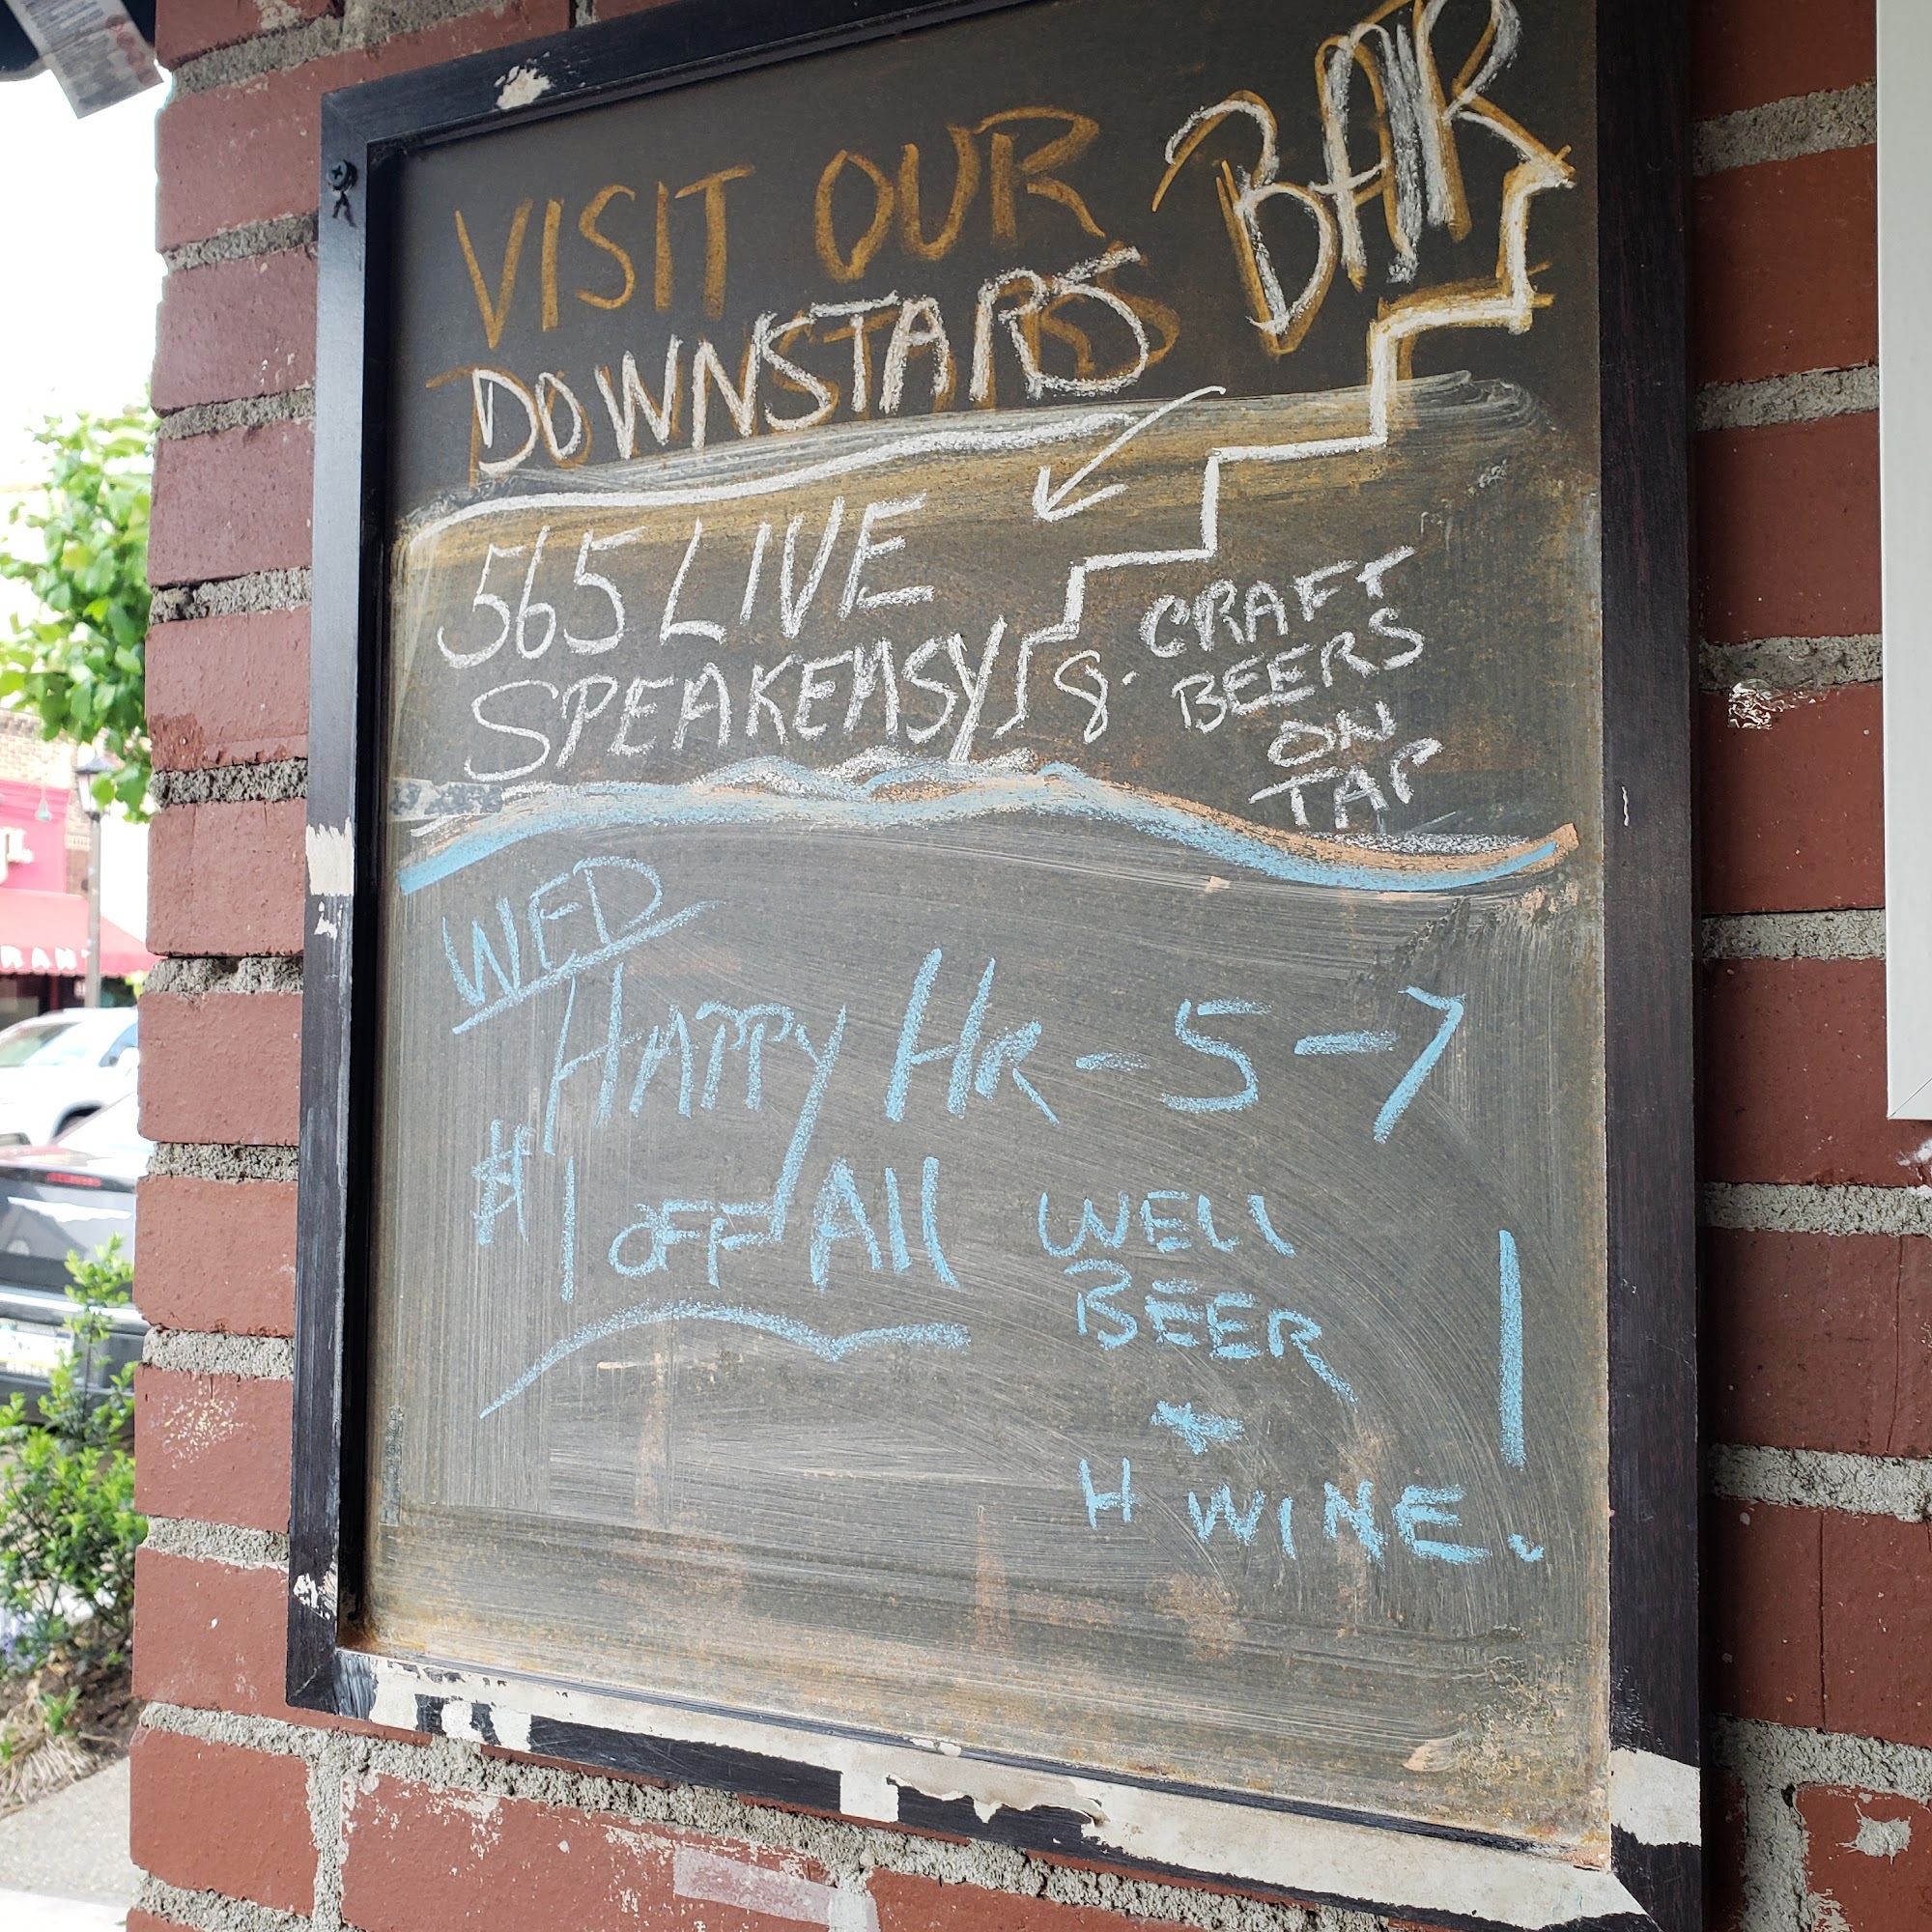 VISIT OUR BAR
DOWNSTARS
565 LIVE
SPEAKEASY
8. CRAFT
BEERS
ON
TAP
WED
HAPPY HR - 5 - 7
$1 OFF All WELL
BEER
H WINE. !